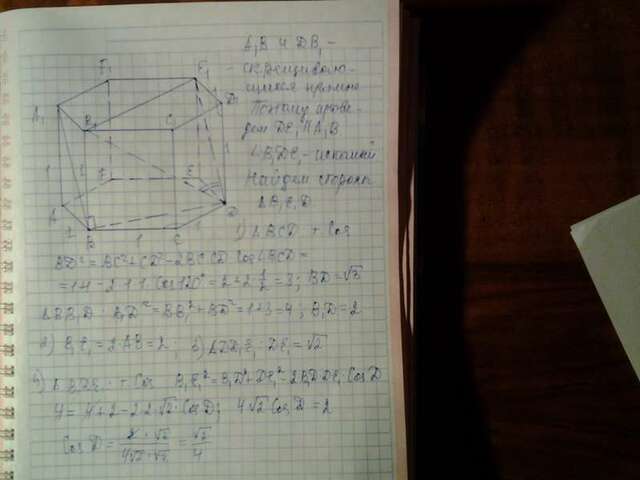 A₁B и DB₁ –
– скрещиваю-
щиеся прямые
Поэтому прове-
дем DE₁ ∥ A₁B
∠B₁DE₁ – искомый
Найдем стороны
ΔB₁E₁D
1) ΔBCD т cos
BD² = BC² + CD² – 2BC·CD·cos∠BCD =
= 1+1 – 2·1·1·cos120° = 2+2·½ = 3; BD = √3
ΔBB₁D: B₁D² = BB₁² + BD² = 1+3 = 4; B₁D = 2
2) B₁E₁ = 2·AB = 2 3) ΔDD₁E₁: DE₁ = √2
4) т cos B₁E₁² = B₁D² + DE₁² – 2B₁D·DE₁·cosD
4 = 4+2 – 2·2·√2·cosD; 4√2 cosD = 2
cosD = 2·√2/4√2·√2 = √2/4
F₁
E₁
A₁
D₁
B₁
C₁
1
1
1
F
E
A
D
B
1
C
1